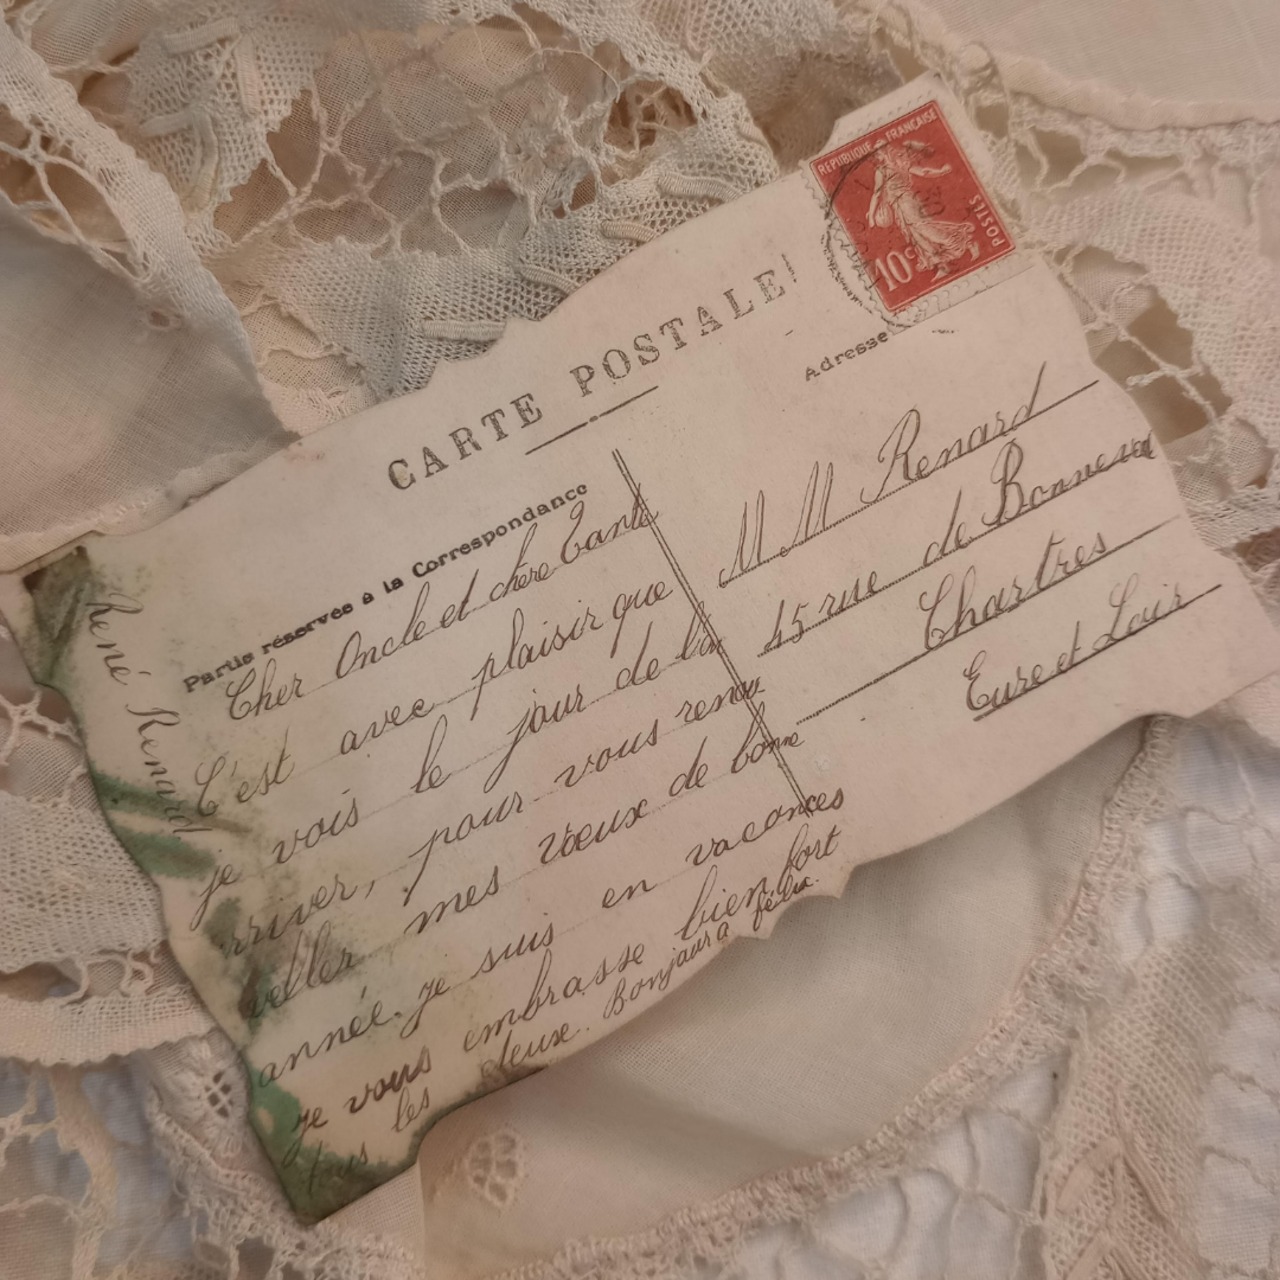 CARTE POSTALE
RÉPUBLIQUE FRANÇAISE
POSTES
10c
Partie réservée à la Correspondance
Adresse
Cher Oncle et chère Tante
C'est avec plaisir que
je vois le jour de l'an
rriver, pour vous renou
veller mes vœux de bonne
année. je suis en vacances
je vous embrasse bien fort
tous les deux. Bonjour à félix.
René Renard
M M Renard
45 rue de Bonneval
Chartres
Eure et Loir